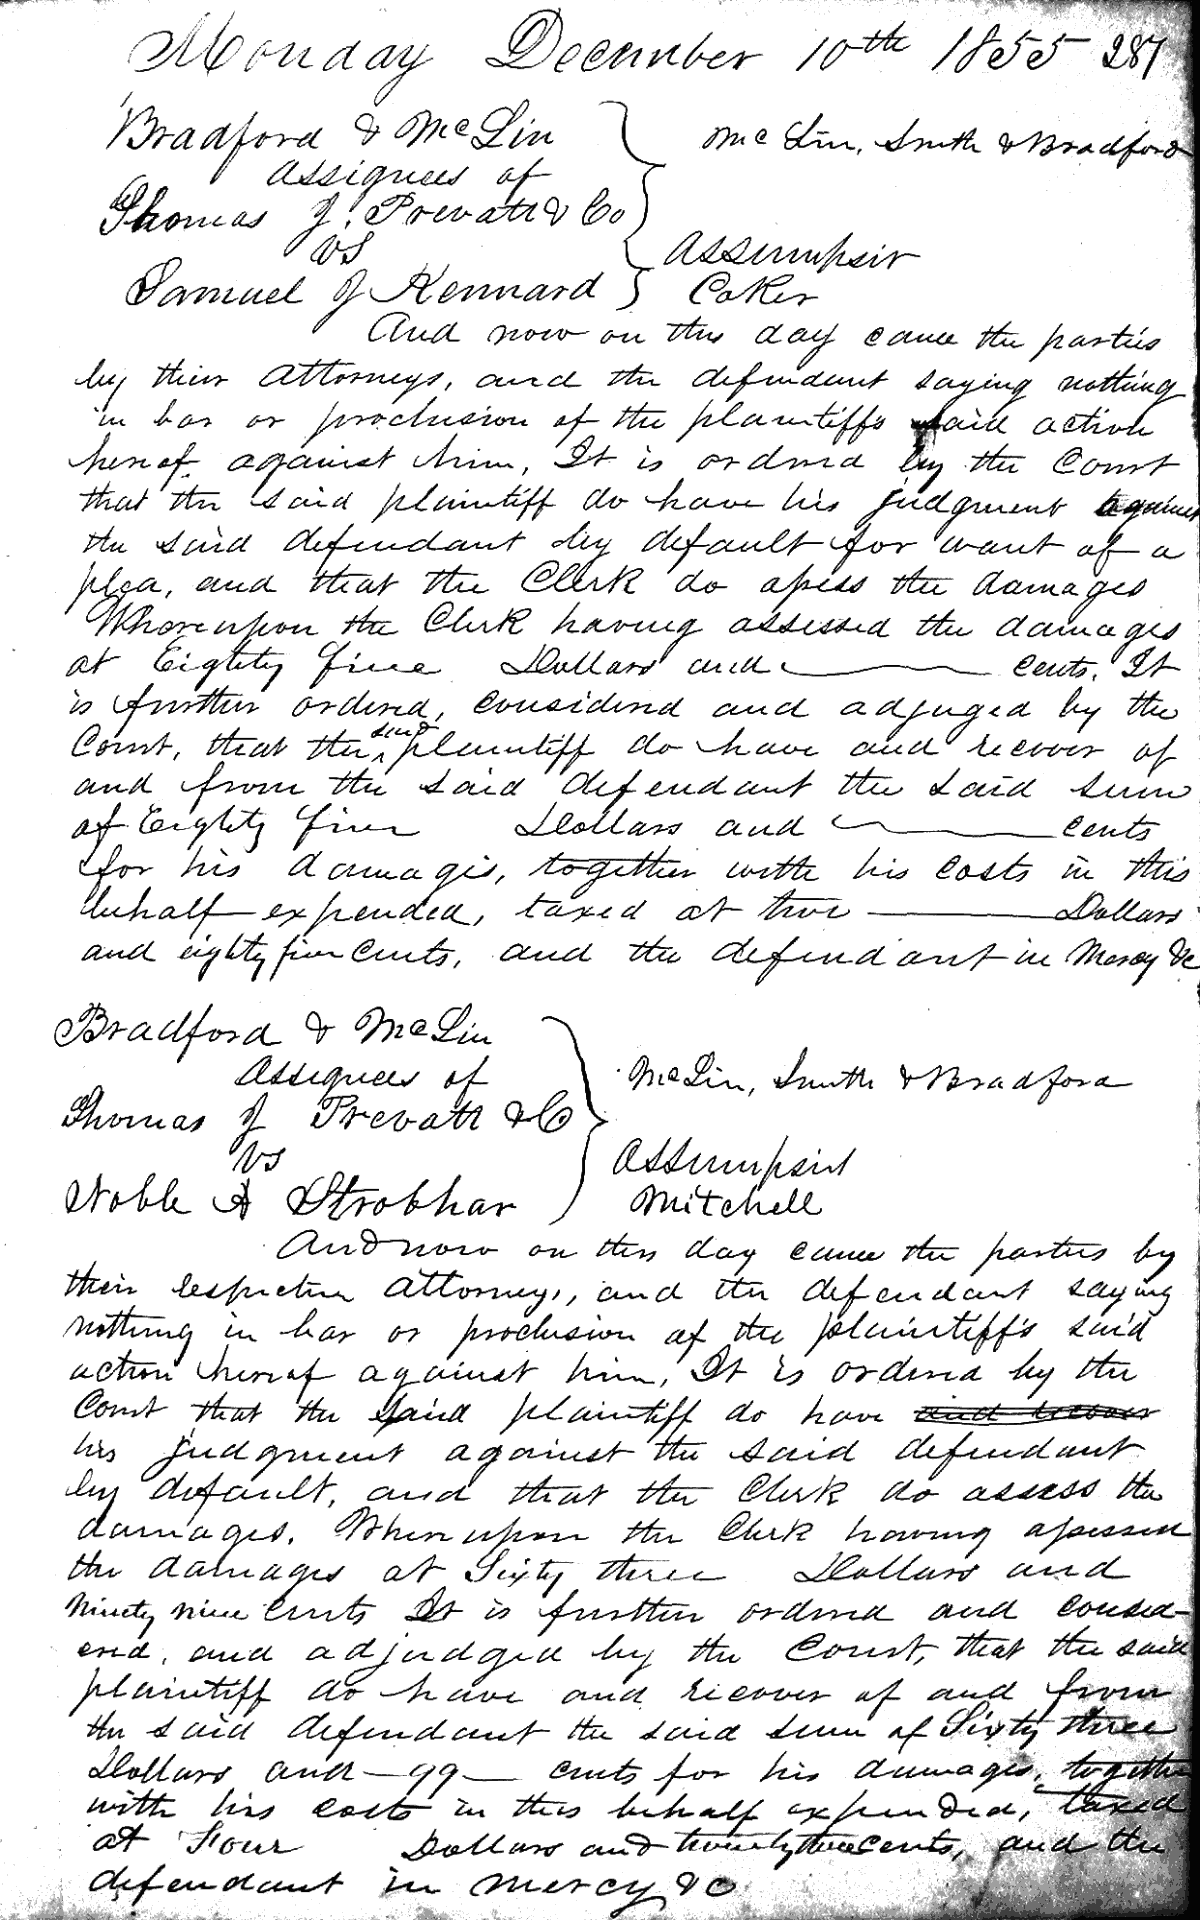 Monday December 10th 1855 287
Bradford & McLin
McLin, Smith & Bradford
Assignees of
Thomas J. Prevatt & Co
vs
Assumpsit
Samuel J Kennard
Coker
And now on this day came the parties
by their Attorneys, and the defendant saying nothing
in bar or preclusion of the plaintiffs said action
hereof against him, It is ordered by the Court
that the said plaintiff do have his judgment against
the said defendant by default for want of a
plea, and that the Clerk do assess the damages
Whereupon the Clerk having assessed the damages
at Eighty five Dollars and —— cents. It
is further ordered, considered and adjuged by the
Court, that the said plaintiff do have and recover of
and from the said defendant the said sum
of Eighty five Dollars and —— cents
for his damages, together with his costs in this
behalf expended, taxed at —— Dollars
and eighty five cents, and the defendant in mercy &c
Bradford & McLin
Assignees of
McLin, Smith & Bradford
Thomas J Prevatt & Co
vs
Assumpsit
Noble A Strobhar
Mitchell
And now on this day came the parties by
their respective attorneys, and the defendant saying
nothing in bar or preclusion of the plaintiffs said
action hereof against him, It is ordered by the
Court that the said plaintiff do have and recover
his judgment against the said defendant
by default, and that the Clerk do assess the
damages. Whereupon the Clerk having assessed
the damages at Sixty three Dollars and
Ninety nine Cents It is further ordered and consid-
ered, and adjudged by the Court, that the said
plaintiff do have and recover of and from
the said defendant the said sum of Sixty three
Dollars and — 99 — cents for his damages, together
with his costs in this behalf expended, taxed
at Four Dollars and cents, and the
defendant in mercy &c